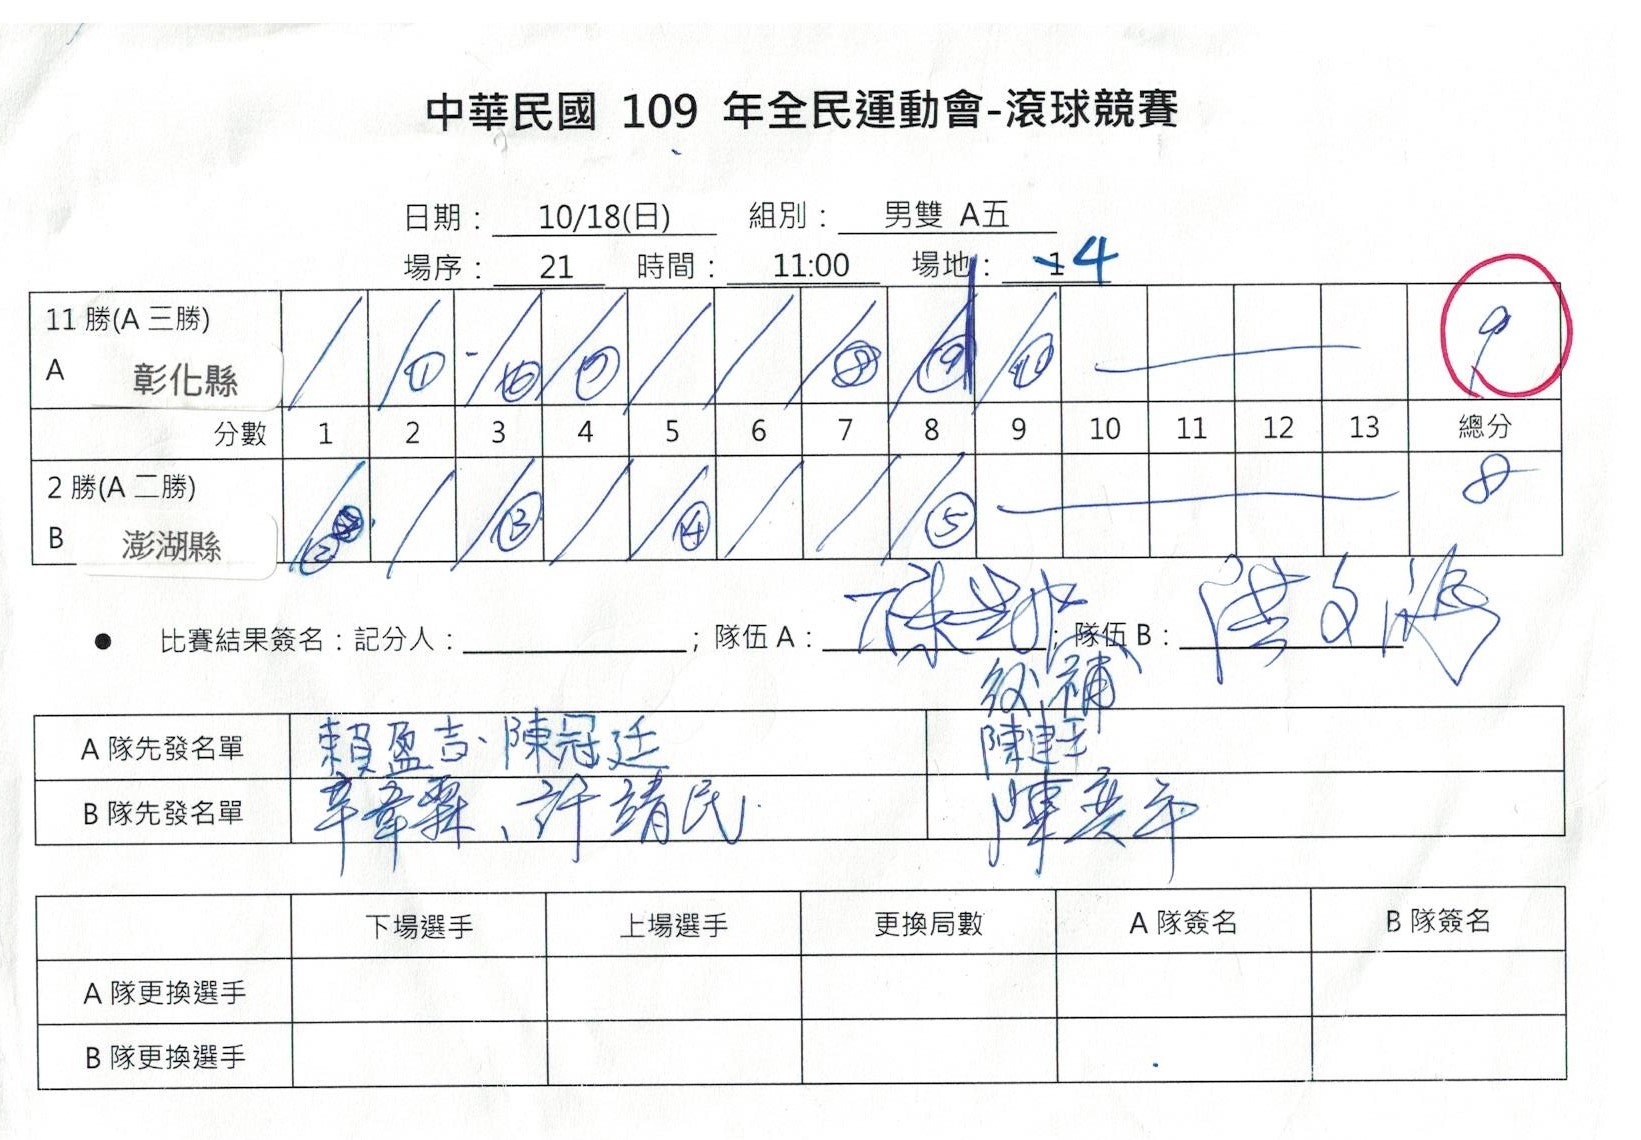 中華民國 109 年全民運動會-滾球競賽
日期： 10/18(日) 組別： 男雙 A五
場序： 21 時間： 11:00 場地： 1 4
11 勝(A 三勝)
A 彰化縣 1 10 7 8 9 9
分數 1 2 3 4 5 6 7 8 9 10 11 12 13 總分
2 勝(A 二勝) 8
B 澎湖縣 2 3 4 5
● 比賽結果簽名：記分人： ；隊伍 A： ；隊伍 B：
候補
A 隊先發名單 賴盈吉、陳冠廷 陳建宇
B 隊先發名單 許靖民 陳奕年
下場選手 上場選手 更換局數 A 隊簽名 B 隊簽名
A 隊更換選手
B 隊更換選手